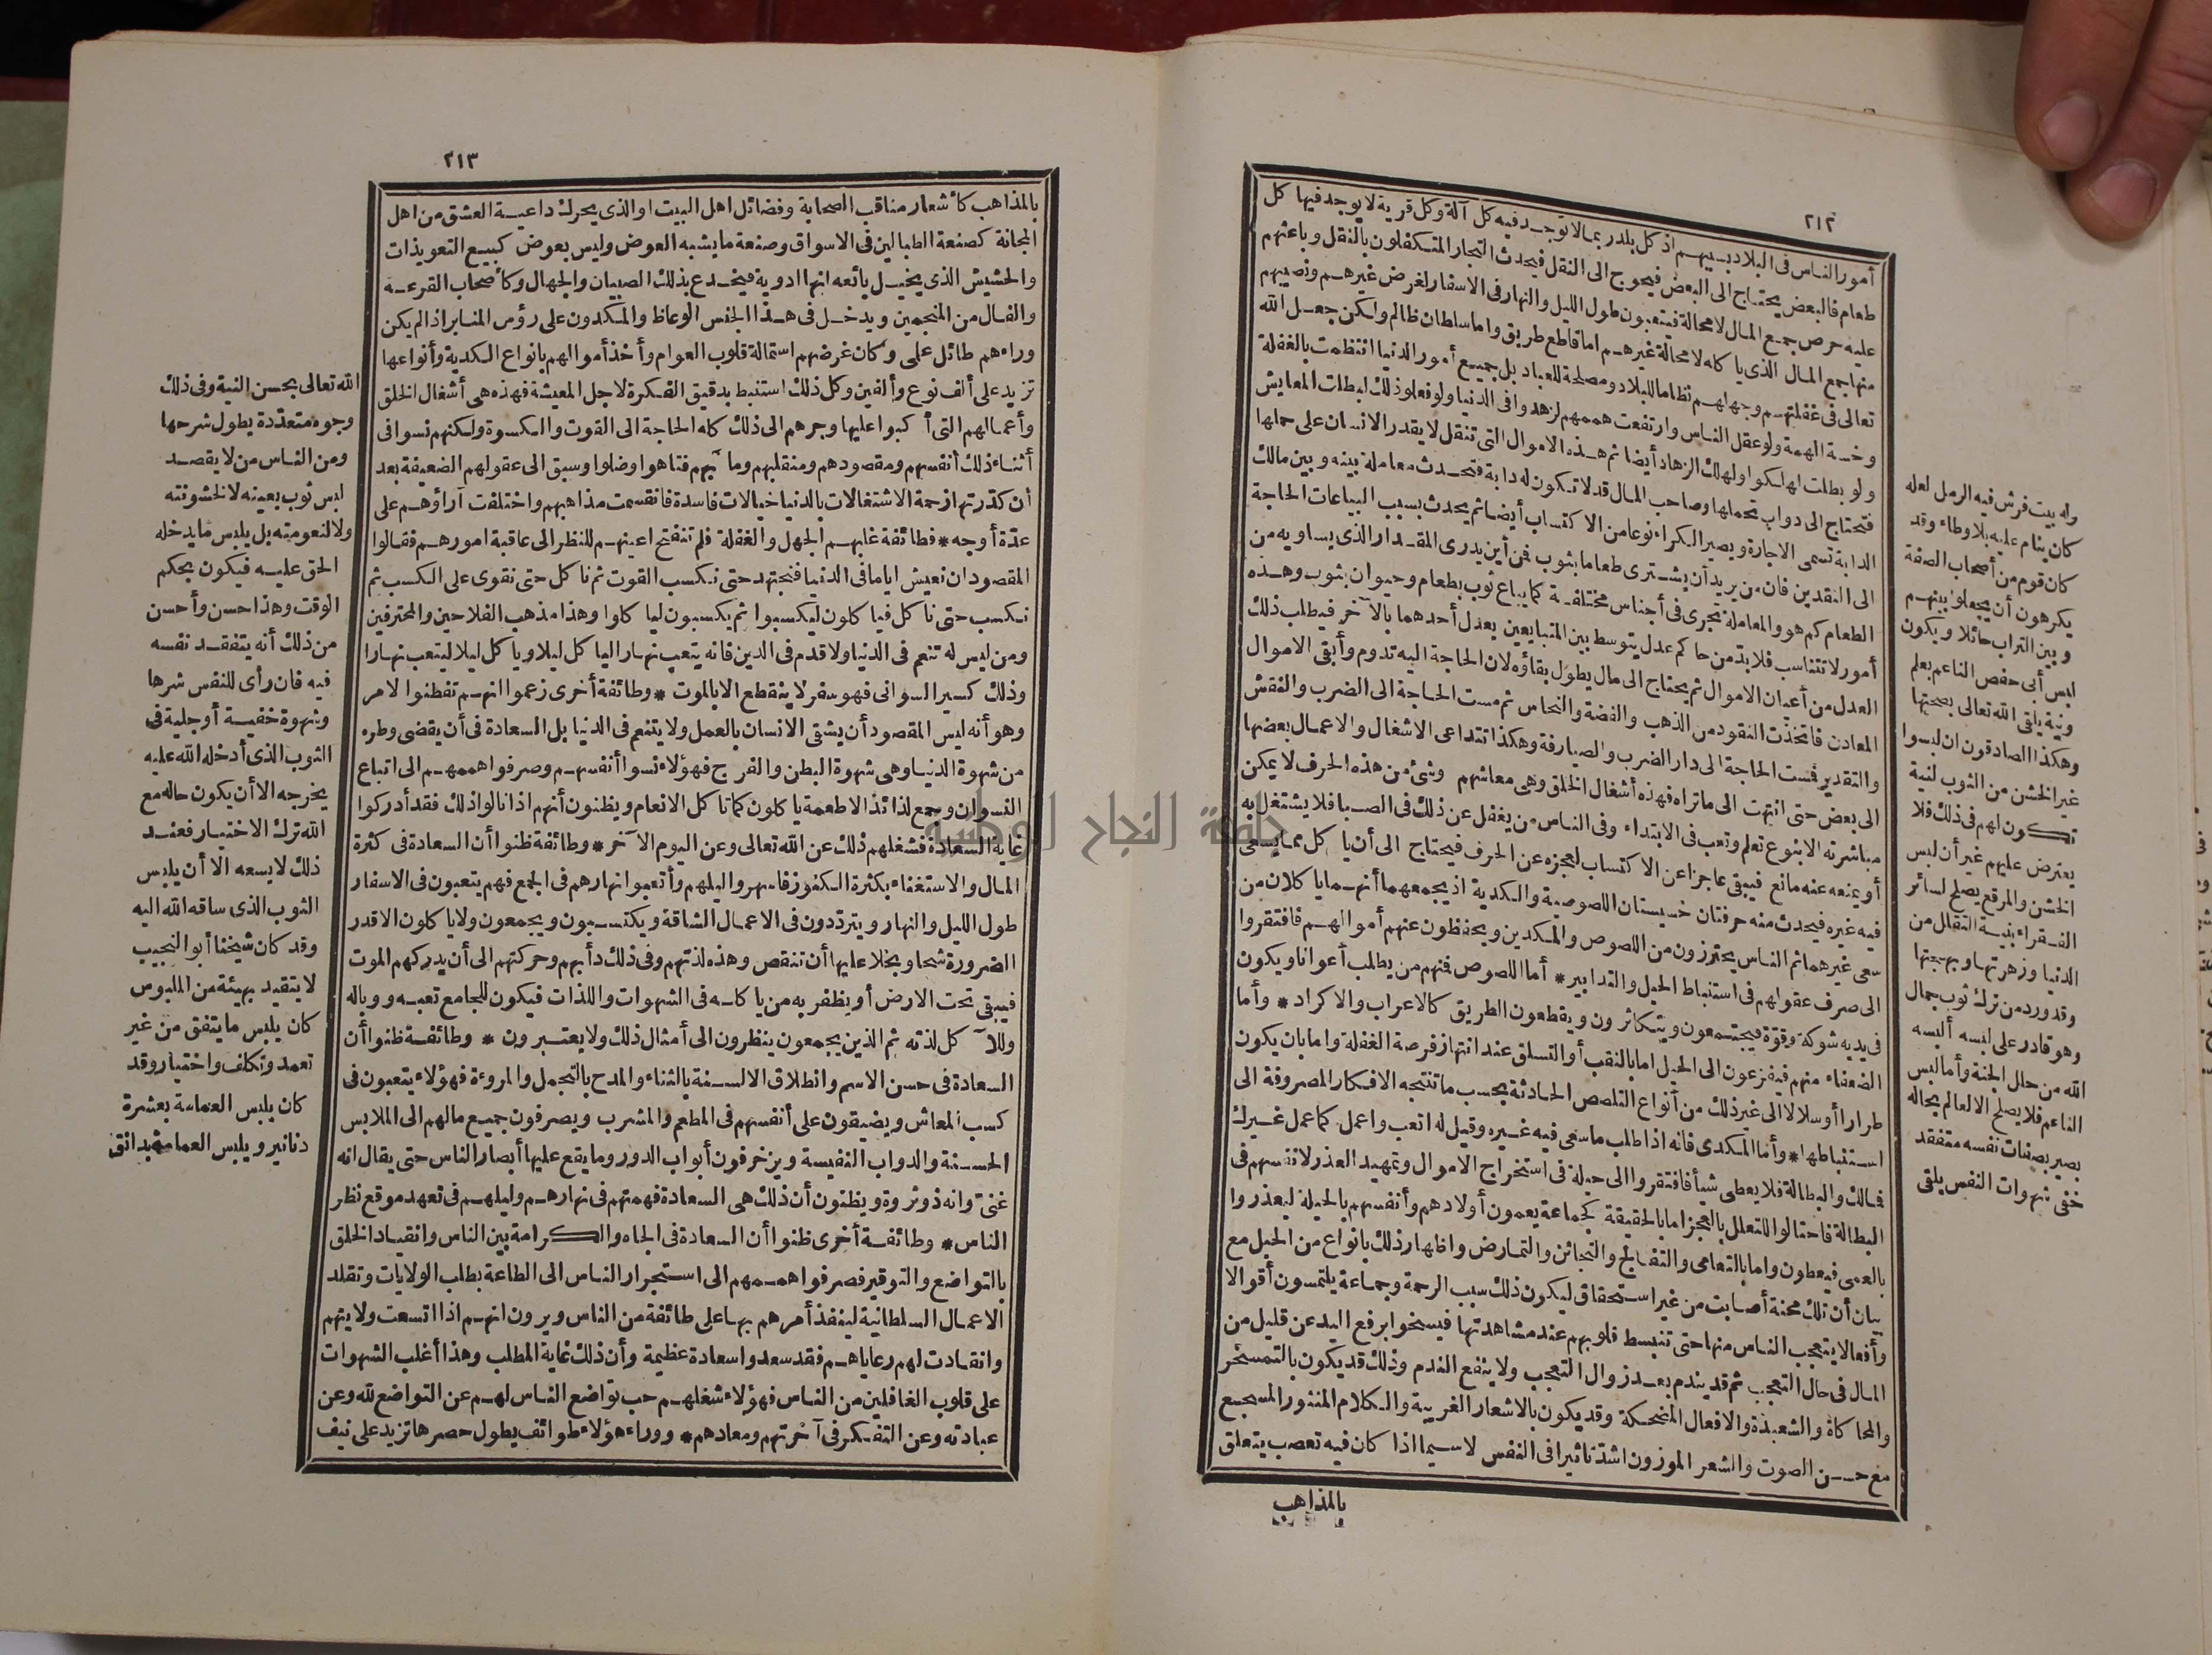 ٢١٢
أمور الناس فى البلاد بينهم اذ كل بلد ربما لا توجد فيه كل آلة وكل قرية لا يوجد فيها كل
طعام فالبعض يحتاج الى البعض فيحوج الى النقل فيحدث التجار المتكفلون بالنقل وباعثهم
عليه حرص جمع المال لا محالة فيتعبون طول الليل والنهار فى الاسفار لغرض غيرهم ونصيبهم
منها جمع المال الذى يا كله لا محالة غيرهم اما قاطع طريق واما سلطان ظالم ولكن جعل الله
تعالى فى غفلتهم وجهلهم نظاما للبلاد ومصلحة للعباد بل جميع أمور الدنيا انتظمت بالغفلة
وخسة الهمة ولو عقل الناس وارتفعت هممهم لزهدوا فى الدنيا ولو فعلوا ذلك لبطلت المعايش
ولو بطلت لهلكوا ولهلك الزهاد أيضا ثم هذه الاموال التى تنقل لا يقدر الانسان على حملها
فتحتاج الى دواب تحملها وصاحب المال قد لا تكون له دابة فتحدث معاملة بينه وبين مالك
الدابة تسمى الاجارة ويصير الكراء نوعا من الاكتساب أيضا ثم يحدث بسبب البياعات الحاجة
الى النقدين فان من يريد أن يشترى طعاما بثوب فمن أين يدرى المقدار الذى يساويه من
الطعام كم هو والمعاملة تجرى فى أجناس مختلفة كما يباع ثوب بطعام وحيوان بثوب وهذه
أمور لا تتناسب فلا بدّ من حاكم عدل يتوسط بين المتبايعين يعدل أحدهما بالآخر فيطلب ذلك
العدل من أعيان الاموال ثم يحتاج الى مال يطول بقاؤه لان الحاجة اليه تدوم وأبقى الاموال
المعادن فاتخذت النقود من الذهب والفضة والنحاس ثم مست الحاجة الى الضرب والنقش
والتقدير فمست الحاجة الى دار الضرب والصيارفة وهكذا تتداعى الاشغال والاعمال بعضها
الى بعض حتى انتهت الى ما تراه فهذه أشغال الخلق وهى معاشهم وشئ من هذه الحرف لا يمكن
مباشرته الا بنوع تعلم وتعب فى الابتداء وفى الناس من يغفل عن ذلك فى الصبا فلا يشتغل به
أو يمنعه عنه مانع فيبقى عاجزا عن الاكتساب لعجزه عن الحرف فيحتاج الى أن يا كل مما يسعى
فيه غيره فيحدث منه حرفتان خسيستان اللصوصية والكدية اذ يجمعهما أنهما يا كلان من
سعى غيرهما ثم الناس يحترزون من اللصوص والمكدين ويحفظون عنهم أموالهم فافتقروا
الى صرف عقولهم فى استنباط الحيل والتدابير * أما اللصوص فمنهم من يطلب أعوانا ويكون
فى يديه شوكة وقوّة فيجتمعون ويتكاثرون ويقطعون الطريق كالاعراب والاكراد * وأما
الضعفاء منهم فيفزعون الى الحيل اما بالنقب أو التسلق عند انتهاز فرصة الغفلة واما بان يكون
طرارا أو سلالا الى غير ذلك من أنواع التلصص الحادثة بحسب ما تنتجه الافكار المصروفة الى
استنباطها * وأما المكدى فانه اذا طلب ما سعى فيه غيره وقيل له اتعب واعمل كما عمل غيرك
فمالك والبطالة فلا يعطى شيأ فافتقروا الى حيلة فى استخراج الاموال وتمهيد العذر لانفسهم فى
البطالة فاحتالوا للتعلل بالعجز اما بالحقيقة كجماعة يعمون أولادهم وأنفسهم بالحيلة ليعذروا
بالعمى فيعطون واما بالتعامى والتفالج والتجانن والتمارض واظهار ذلك بانواع من الحيل مع
بيان أن تلك محنة أصابت من غير استحقاق ليكون ذلك سبب الرحمة وجماعة يلتمسون أقوالا
وأفعالا يتعجب الناس منها حتى تنبسط قلوبهم عند مشاهدتها فيسخوا برفع اليد عن قليل من
المال فى حال التعجب ثم قد يندم بعد زوال التعجب ولا ينفع الندم وذلك قد يكون بالتمسخر
والمحاكاة والشعبذة والافعال المضحكة وقد يكون بالاشعار الغريبة والكلام المنثور المسجع
مع حسن الصوت والشعر الموزون اشد تاثيرا فى النفس لا سيما اذا كان فيه تعصب يتعلق
بالمذاهب
وله بيت فرش فيه الرمل لعله
كان ينام عليه بلا وطاء وقد
كان قوم من أصحاب الصفة
يكرهون أن يجعلوا بينهم
وبين التراب حائلا ويكون
لبس أبى حفص الناعم بعلم
ونية يلقى الله تعالى بصحتها
وهكذا الصادقون ان لبسوا
غير الخشن من الثوب لنية
تكون لهم فى ذلك فلا
يعترض عليهم غير أن لبس
الخشن والمرقع يصلح لسائر
الفقراء بنية التقلل من
الدنيا وزهرتها وبهجتها
وقد ورد من ترك ثوب جمال
وهو قادر على لبسه ألبسه
الله من حلل الجنة وأما لبس
الناعم فلا يصلح الا لعالم بحاله
بصير بصفات نفسه متفقد
خفى شهوات النفس يلقى
٢١٣
بالمذاهب كأشعار مناقب الصحابة وفضائل اهل البيت او الذى يحرك داعية العشق من اهل
المجانة كصنعة الطبالين فى الاسواق وصنعة ما يشبه العوض وليس بعوض كبيع التعويذات
والحشيش الذى يخيل بائعه انها ادوية فيخدع بذلك الصبيان والجهال وكأصحاب القرعة
والفال من المنجمين ويدخل فى هذا الجنس الوعاظ والمكدون على رؤس المنابر اذا لم يكن
وراءهم طائل علمى وكان غرضهم استمالة قلوب العوام وأخذ أموالهم بانواع الكدية وأنواعها
تزيد على ألف نوع وألفين وكل ذلك استنبط بدقيق الفكرة لاجل المعيشة فهذه هى أشغال الخلق
وأعمالهم التى أكبوا عليها وجرهم الى ذلك كله الحاجة الى القوت والكسوة ولكنهم نسوا فى
أثناء ذلك أنفسهم ومقصودهم ومنقلبهم ومآبهم فتاهوا وضلوا وسبق الى عقولهم الضعيفة بعد
أن كدّرتها زحمة الاشتغالات بالدنيا خيالات فاسدة فانقسمت مذاهبهم واختلفت آراؤهم على
عدّة أوجه * فطائفة غلبهم الجهل والغفلة فلم تنفتح اعينهم للنظر الى عاقبة امورهم فقالوا
المقصود ان نعيش اياما فى الدنيا فنجتهد حتى نكسب القوت ثم نا كل حتى نقوى على الكسب ثم
نكسب حتى نا كل فيا كلون ليكسبوا ثم يكسبون ليا كلوا وهذا مذهب الفلاحين والمحترفين
ومن ليس له تنعم فى الدنيا ولا قدم فى الدين فانه يتعب نهارا ليا كل ليلا ويا كل ليلا ليتعب نهارا
وذلك كسير السوانى فهو سفر لا ينقطع الا بالموت * وطائفة أخرى زعموا انهم تفطنوا لامر
وهو أنه ليس المقصود أن يشقى الانسان بالعمل ولا يتنعم فى الدنيا بل السعادة فى أن يقضى وطره
من شهوة الدنيا وهى شهوة البطن والفرج فهؤلاء نسوا أنفسهم وصرفوا هممهم الى اتباع
النسوان وجمع لذائذ الاطعمة يا كلون كما تا كل الانعام ويظنون أنهم اذا نالوا ذلك فقد أدركوا
غاية السعادة فشغلهم ذلك عن الله تعالى وعن اليوم الآخر * وطائفة ظنوا أن السعادة فى كثرة
المال والاستغناء بكثرة الكنوز فاسهروا ليلهم وأتعبوا نهارهم فى الجمع فهم يتعبون فى الاسفار
طول الليل والنهار ويتردّدون فى الاعمال الشاقة ويكتسبون ويجمعون ولا يا كلون الا قدر
الضرورة شحا وبخلا عليها أن تنقص وهذه لذتهم وفى ذلك دأبهم وحركتهم الى أن يدركهم الموت
فيبقى تحت الارض أو يظفر به من يا كله فى الشهوات واللذات فيكون للجامع تعبه ووباله
وللآكل لذته ثم الذين يجمعون ينظرون الى أمثال ذلك ولا يعتبرون * وطائفة ظنوا أن
السعادة فى حسن الاسم وانطلاق الالسنة بالثناء والمدح بالتجمل والمروءة فهؤلاء يتعبون فى
كسب المعاش ويضيقون على أنفسهم فى المطعم والمشرب ويصرفون جميع مالهم الى الملابس
الحسنة والدواب النفيسة ويزخرفون أبواب الدور وما يقع عليها أبصار الناس حتى يقال انه
غنىّ وانه ذو ثروة ويظنون أن ذلك هى السعادة فهمتهم فى نهارهم وليلهم فى تعهد موقع نظر
الناس * وطائفة أخرى ظنوا أن السعادة فى الجاه والكرامة بين الناس وانقياد الخلق
بالتواضع والتوقير فصرفوا هممهم الى استجرار الناس الى الطاعة بطلب الولايات وتقلد
الاعمال السلطانية لينفذ أمرهم بها على طائفة من الناس ويرون انهم اذا اتسعت ولايتهم
وانقادت لهم رعاياهم فقد سعدوا سعادة عظيمة وأن ذلك غاية المطلب وهذا أغلب الشهوات
على قلوب الغافلين من الناس فهؤلاء شغلهم حب تواضع الناس لهم عن التواضع لله وعن
عبادته وعن التفكر فى آخرتهم ومعادهم * ووراء هؤلاء طوائف يطول حصرها تزيد على نيف
الله تعالى بحسن النية وفى ذلك
وجوه متعدّدة يطول شرحها
ومن الناس من لا يقصد
لبس ثوب بعينه لا لخشونته
ولا لنعومته بل يلبس ما يدخله
الحق عليه فيكون بحكم
الوقت وهذا حسن وأحسن
من ذلك أنه يتفقد نفسه
فيه فان رأى للنفس شرها
وشهوة خفية أو جلية فى
الثوب الذى أدخله الله عليه
يخرجه الا أن يكون حاله مع
الله ترك الاختيار فعند
ذلك لا يسعه الا أن يلبس
الثوب الذى ساقه الله اليه
وقد كان شيخنا أبو النجيب
لا يتقيد بهيئة من الملبوس
كان يلبس ما يتفق من غير
تعمد وتكلف واختيار وقد
كان يلبس العمامة بعشرة
دنانير ويلبس العمامة بدانق
جامعة النجاح الوطنية